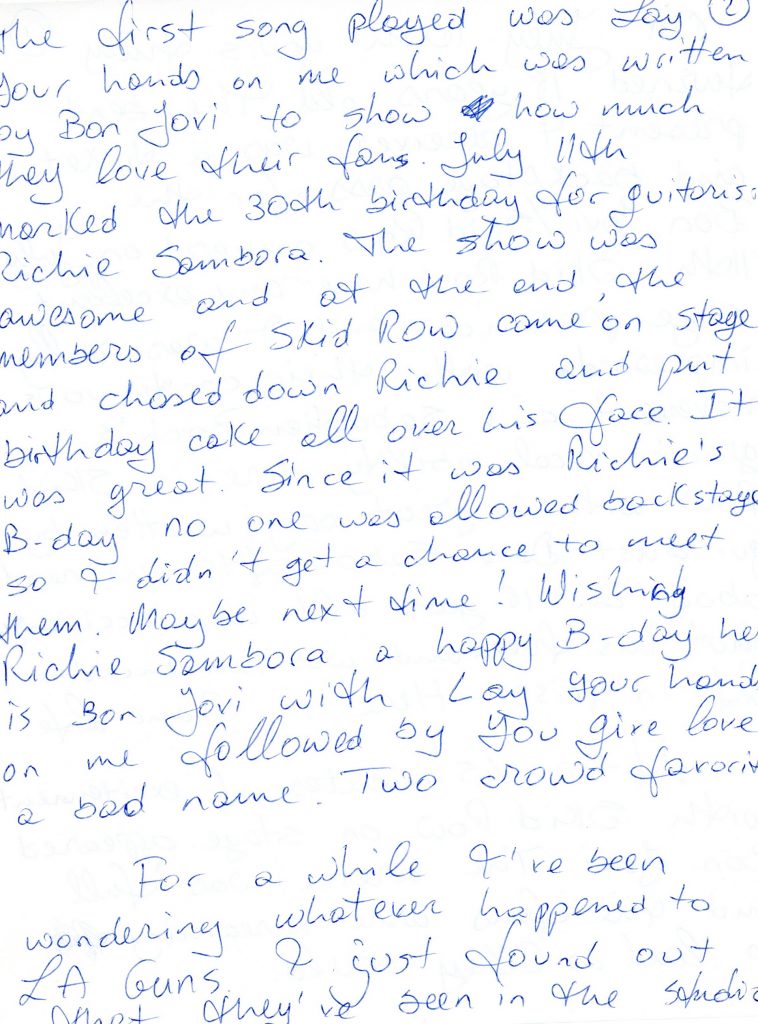 The first song played was Lay 2
your hands on me which was written
by Bon Jovi to show how much
they love their fans. July 11th
marked the 30th birthday for guitoris
Richie Sambora. The show was
awesome and at the end, the
members of Skid Row came on stage
and chased down Richie and put
birthday cake all over his face. It
was great. Since it was Richie's
B-day no one was allowed backstage
so I didn't get a chance to meet
them. Maybe next time! Wishing
Richie Sambora a happy B-day he
is Bon Jovi with Lay your hand
on me followed by You give love
a bad name. Two crowd favorit
For a while I've been
wondering whatever happened to
LA Guns. I just found out
that they've been in the studio